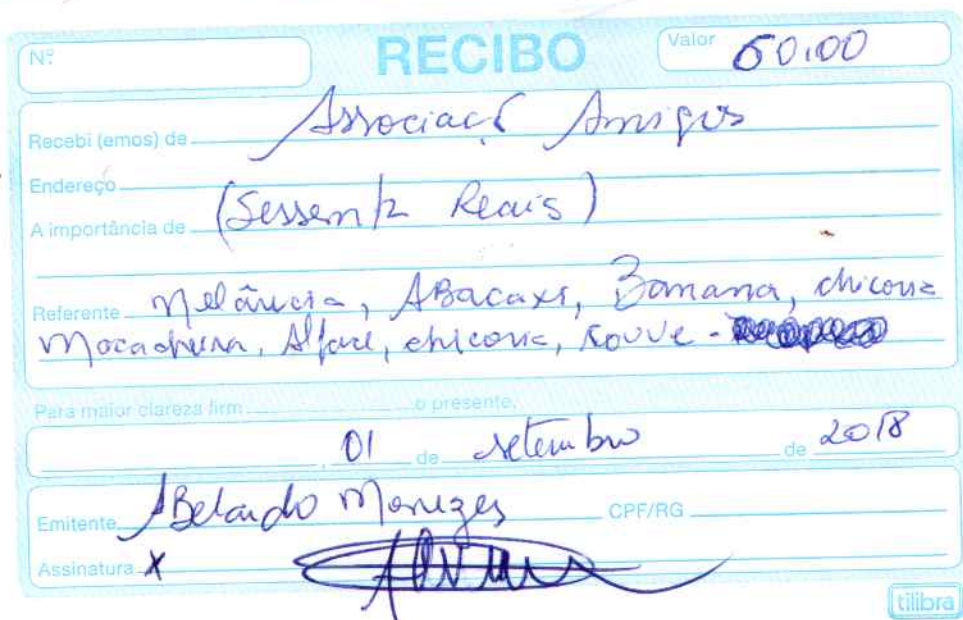 Nº RECIBO Valor 60.00
Recebi (emos) de Associaçõ Amigos
Endereço
A importância de (Sessenta Reais)
Referente Melância, ABacaxi, Banana, chicoria
Macacheira, Alface, chicoria, Kouve -
Para maior clareza firm o presente.
, 01 de setembro de 2018
Emitente ABelardo Menezes CPF/RG
Assinatura X
tilibra